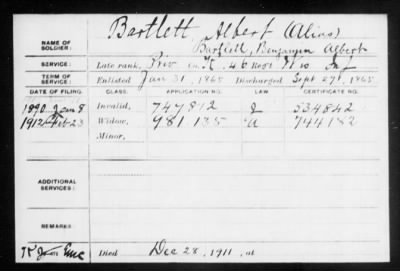 Bartlett, Albert (Alias)
NAME OF SOLDIER: Bartlett, Benjamin Albert
SERVICE: Late rank, Priv Co. K, 46 Regt Inf
TERM OF SERVICE: Enlisted Jan 31, 1865 Discharged Sept 27, 1865
DATE OF FILING. CLASS. APPLICATION NO. LAW. CERTIFICATE NO.
1890 Jan 8 Invalid, 747812 J 534842
1912 Feb 23 Widow, 981135 a 744182
Minor,
ADDITIONAL SERVICES:
REMARKS:
Died Dec 28, 1911, at